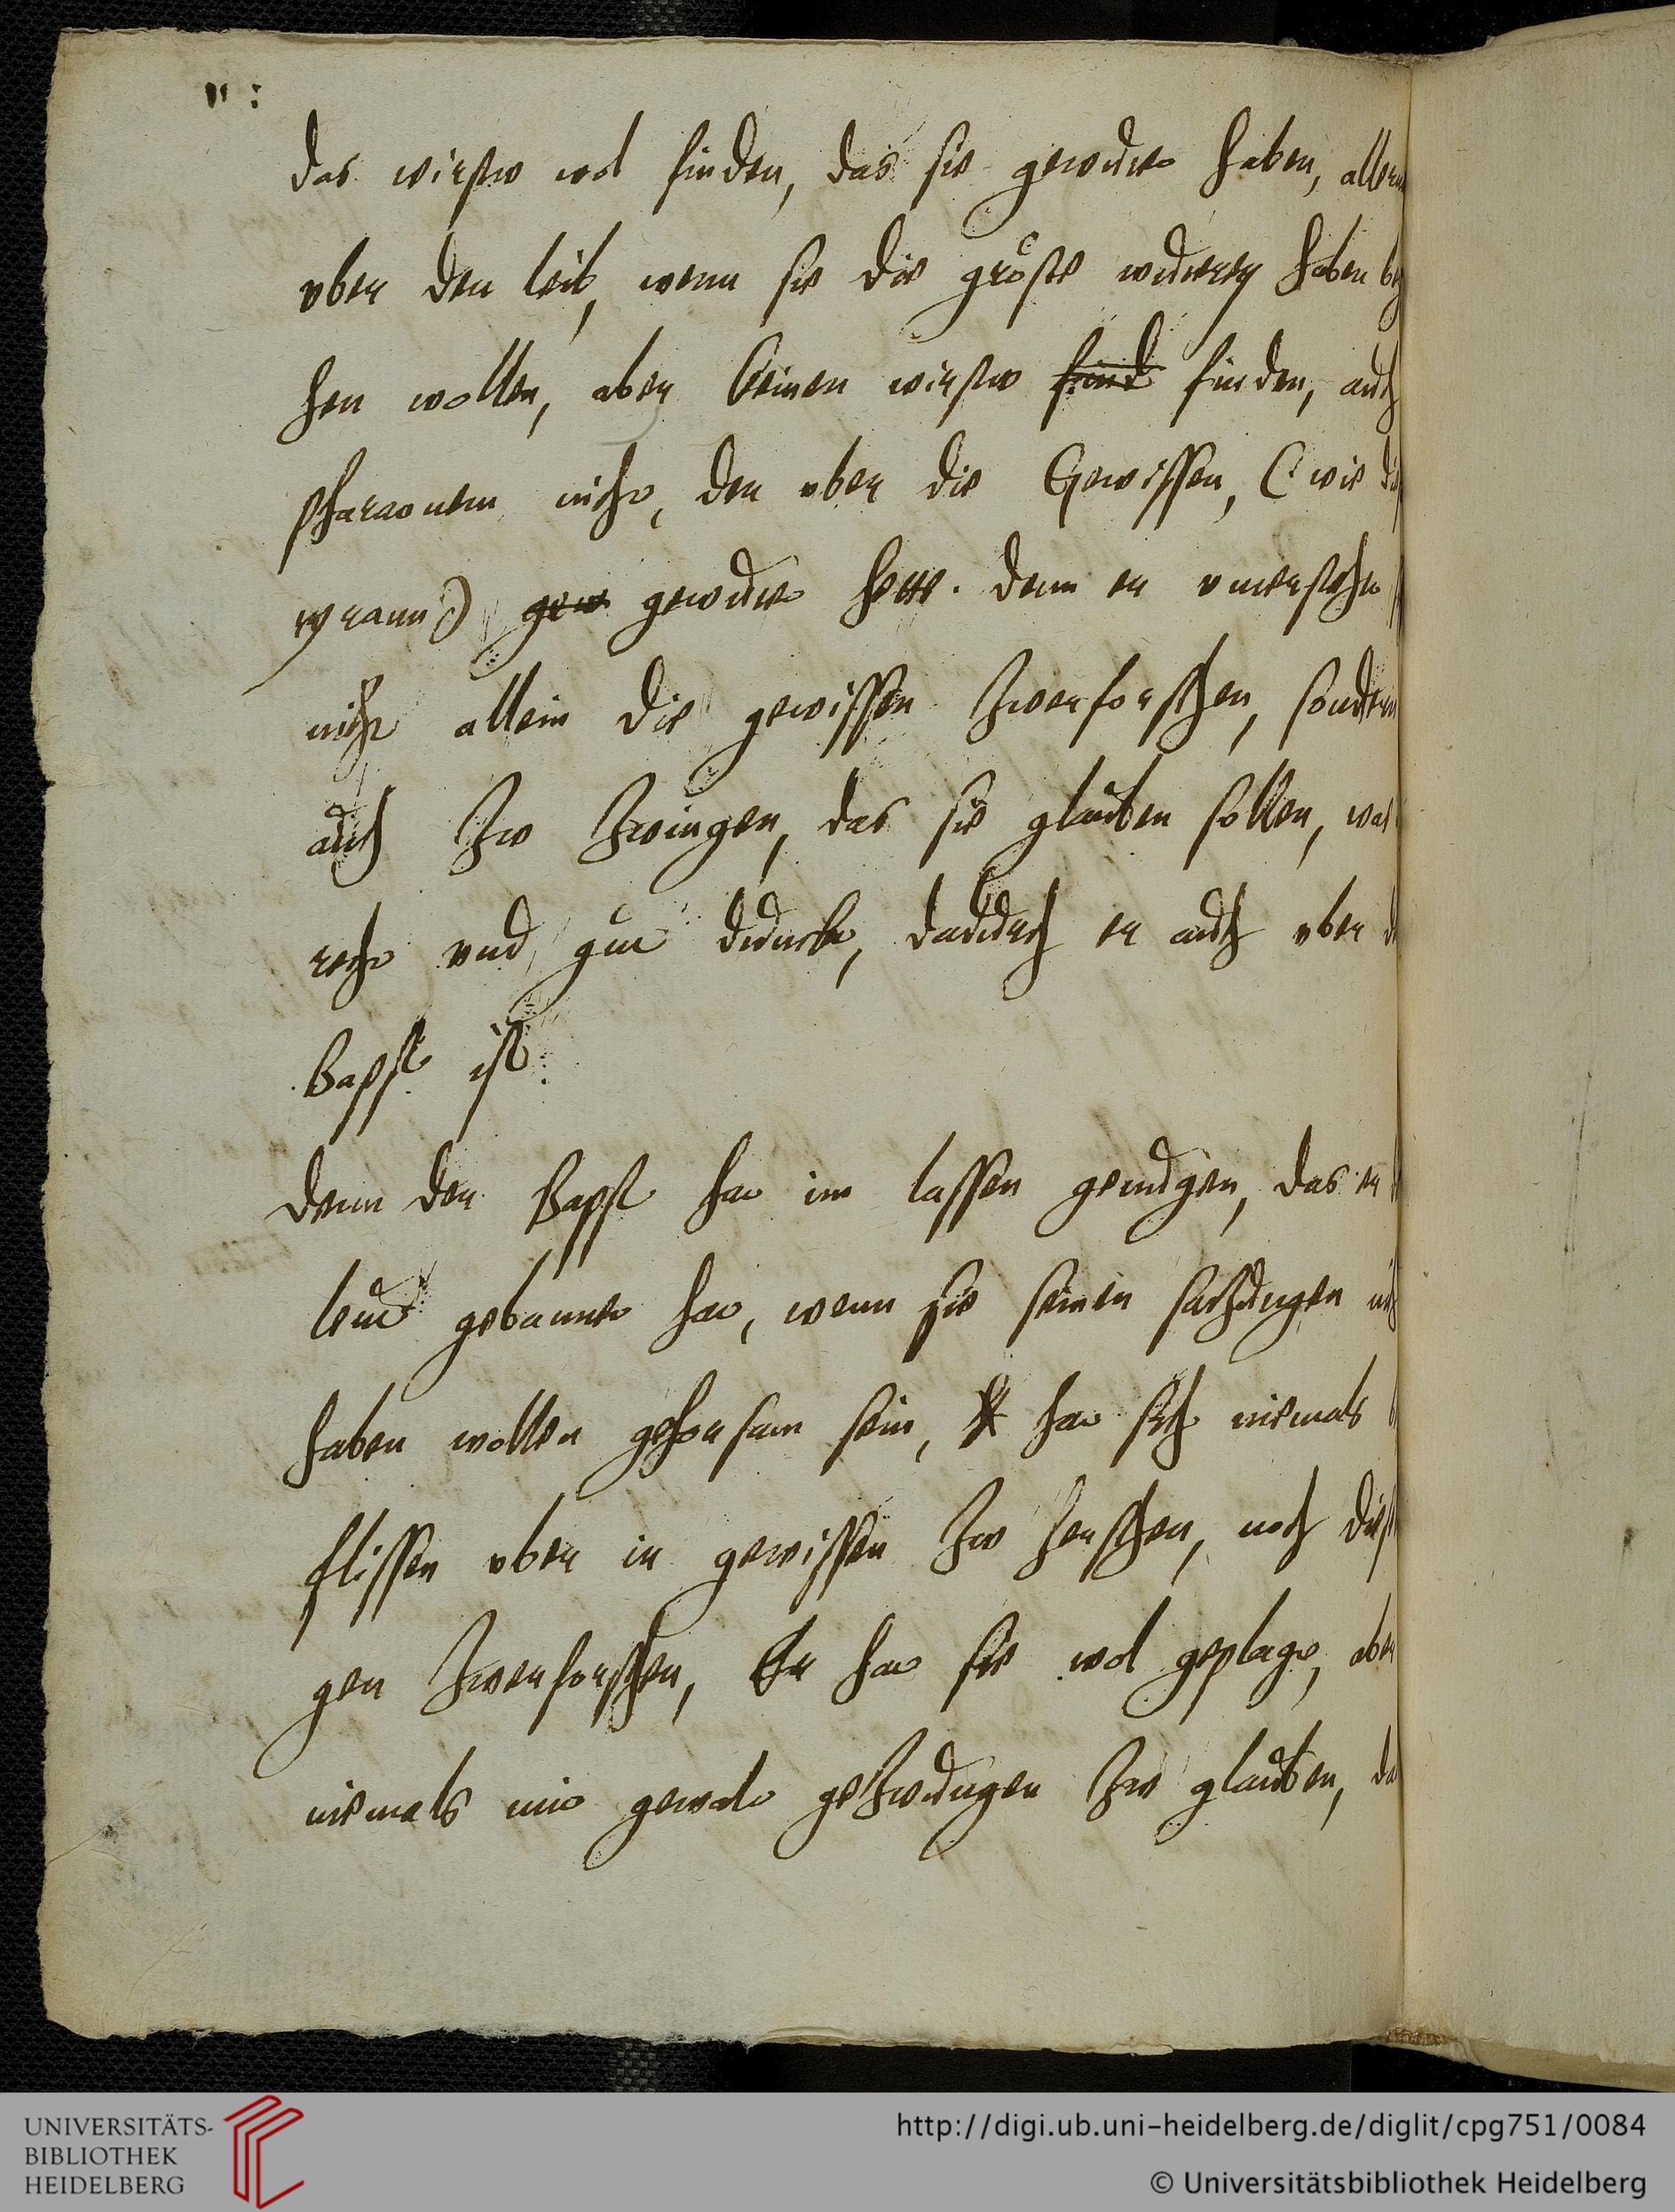 das wirstw wol finden, das sie gewutet haben, allein
vber den leib, wenn sie die gröste wuterey haben beg
hen wollen, aber keinen wirstw find finden, auch
Pharaonem nicht, der vber die Gewissen, (wie die
tyrann) gew gewutet hette. denn er vnterstehet
nicht allein die gewissen zwerforschen, sondern
auch zw zwingen, das sie glauben sollen, was
recht vnd gut dunckt, dadurch er auch vber d
Bapst ist.
denn der Bapst hat im lassen genugen, das er
leut gebannet hat, wenn sie seinen satzungen nich
haben wollen gehorsam sein, hat sich niemals
flissen vber ir gewissen zw herschen, noch dies
gen zwerforschen, Er hat sie wol geplagt, aber
niemals mit gewalt gezwungen zw glauben, da
UNIVERSITÄTS-
BIBLIOTHEK
HEIDELBERG
http://digi.ub.uni-heidelberg.de/diglit/cpg751/0084
© Universitätsbibliothek Heidelberg